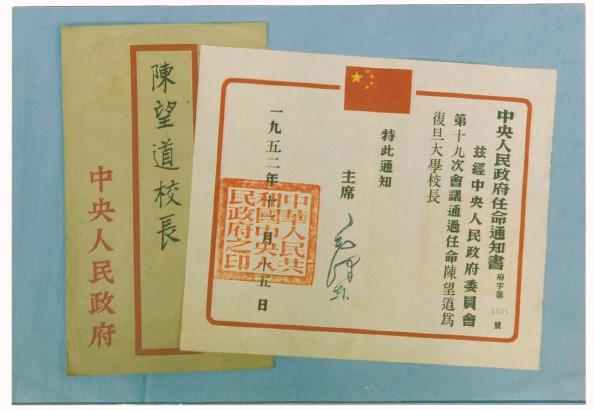 陳望道校長
中央人民政府
中央人民政府任命通知書
府字第
號
茲經中央人民政府委員會
第十九次會議通過任命陳望道爲
復旦大學校長
特此通知
主席
毛澤東
一九五二年十一月十五日
中華人民共
和國中央人
民政府之印